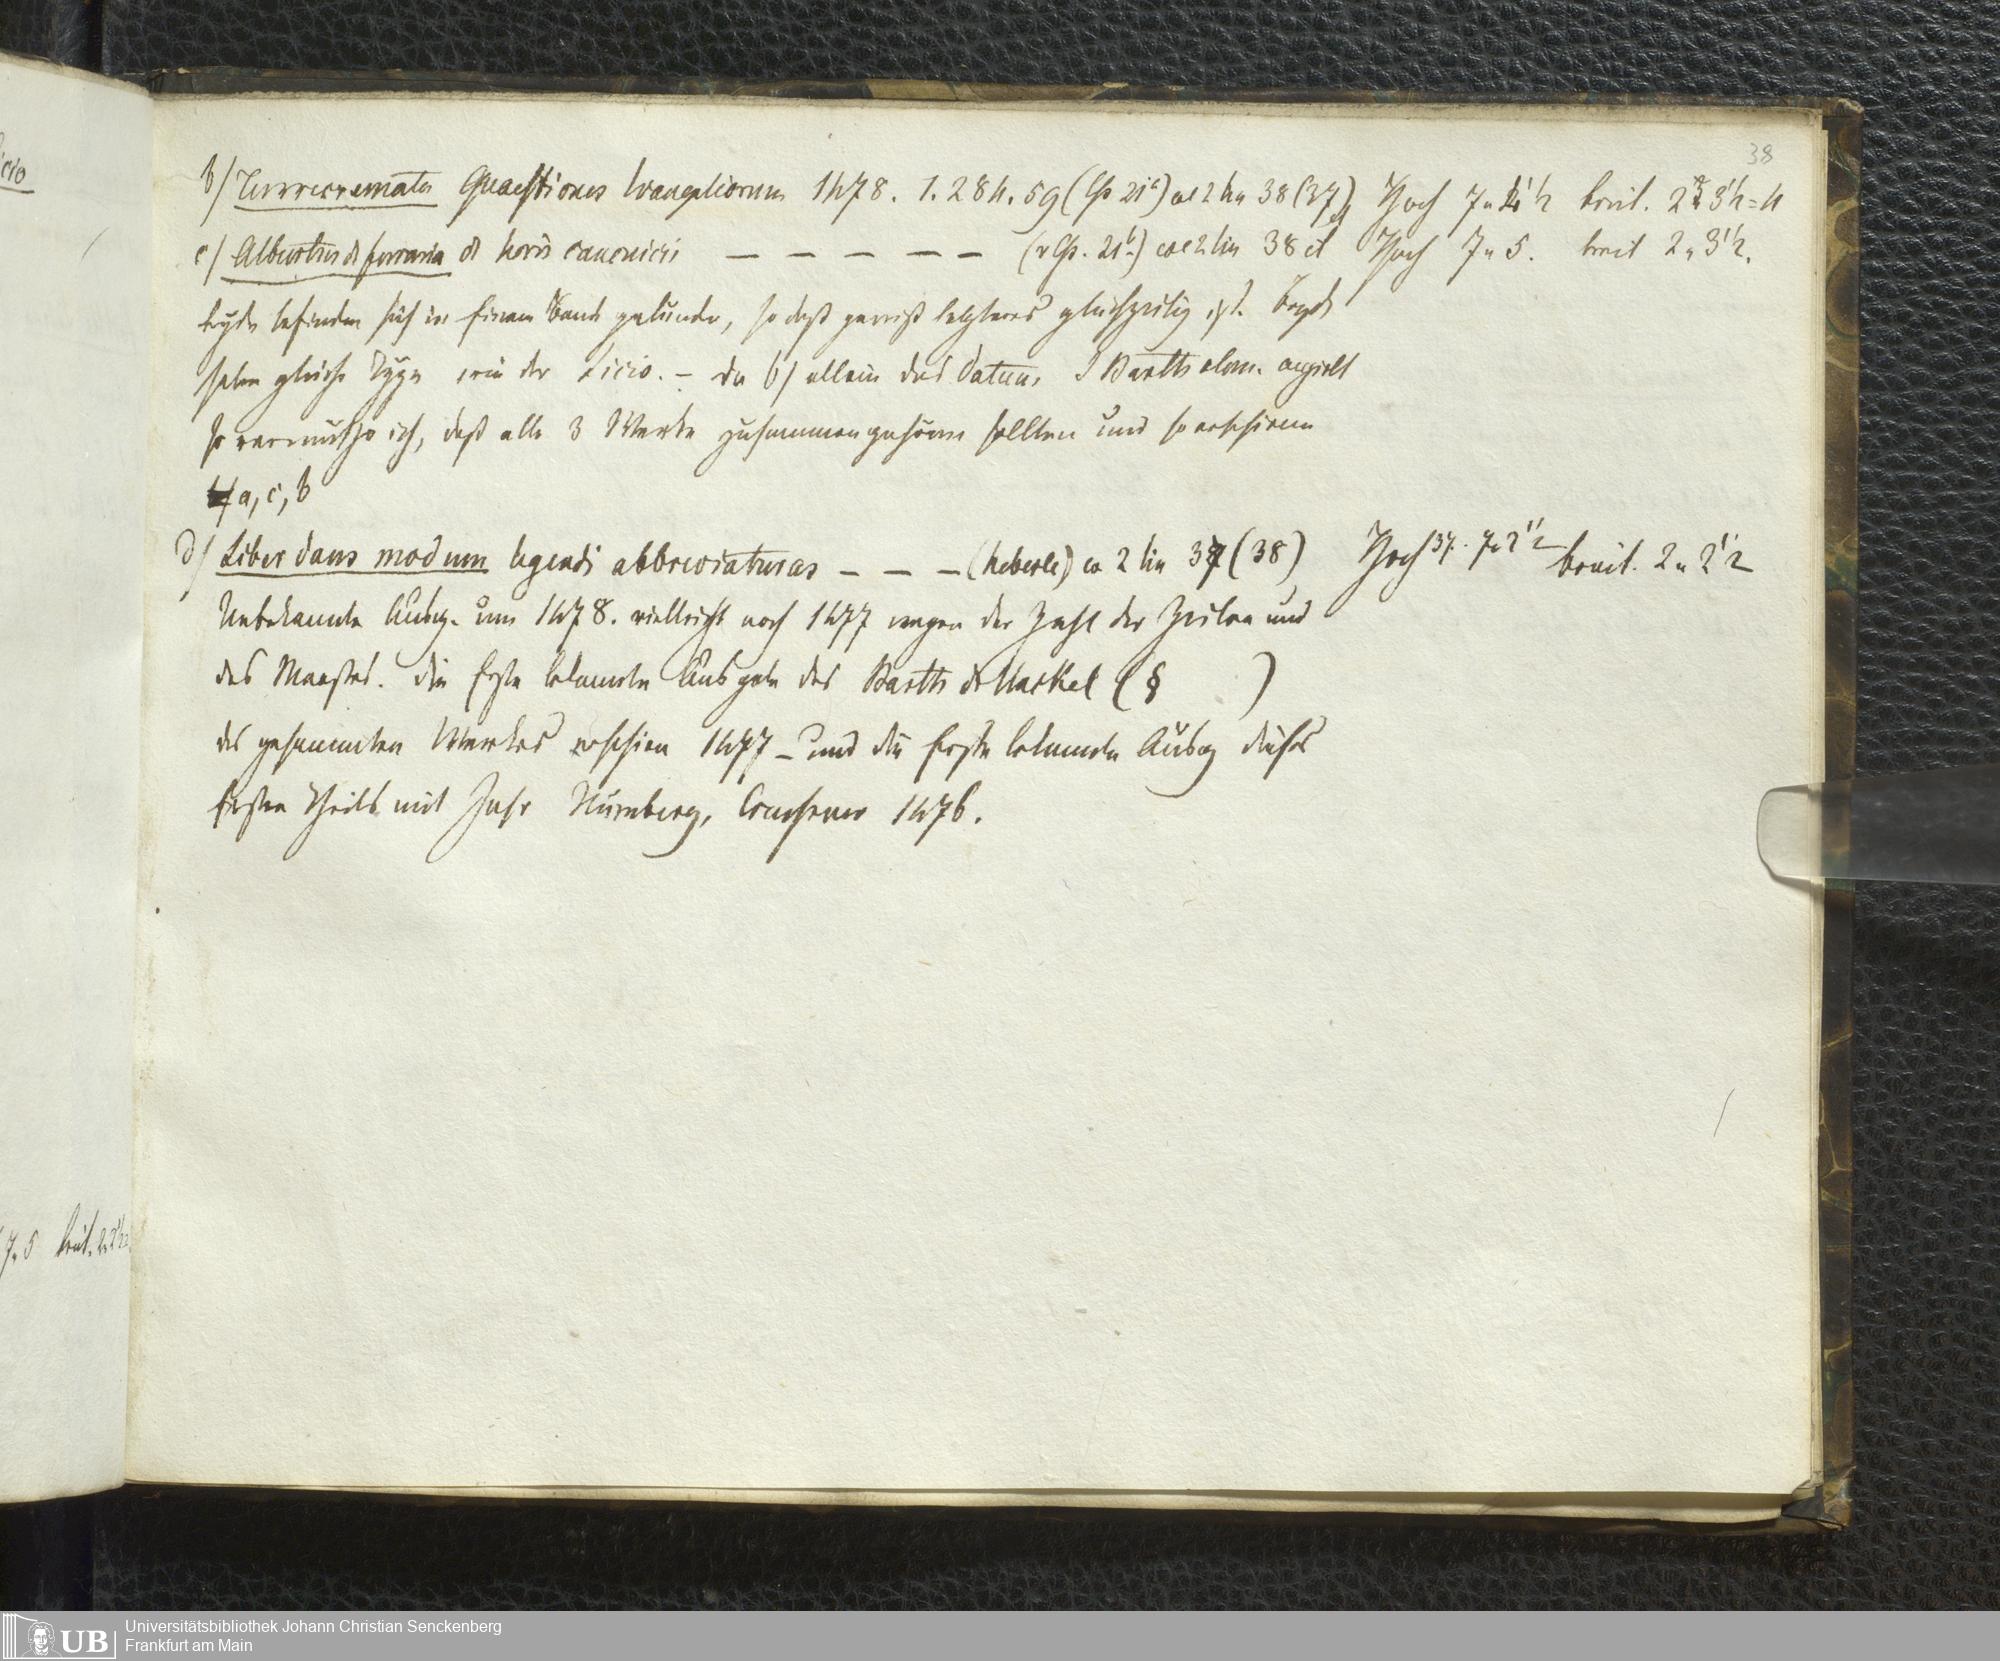 38
b/ Turrecremata Quaestiones Evangeliorum 1478. 1. 284. 59 (Cp 21a) col 2 lin 38 (37) Hoch 7 u 4 1/2 breit. 2 u 3 1/2 = 4
c/ Albertus de ferraria de horis canonicis — — — — — (v Cp. 21b) col 2 lin 38 et Hoch 7 u 5. breit 2 u 3 1/2.
beyde befinden sich in einem Band gebunden, so daß gewiß letzteres gleichzeitig ist. Beyde
haben gleiche Type wie der Licio. – da b/ allein das Datum J Bartholom. angiebt
so vermuthe ich, daß alle 3 Werke zusammengehören sollten und so erschienen
a, c, b
d/ Liber dans modum legendi abbreviaturas – – – (heberle) co 2 lin 37 (38) Hoch 37. 7 u 2 1/2 breit. 2 u 2 1/2
Unbekannte Ausg. um 1478. vielleicht noch 1477 wegen der Zahl der Zeilen und
des Maaßes. die erste bekannte Ausgabe des Barth de Haskel (§ )
des gesammten Werkes erschien 1477 – und die erste bekannte Ausg dieses
ersten Theils mit Jahr Nürnberg, Creussner 1476.
icio
7 u 5 breit. 2 u 2 1/2
UB
Universitätsbibliothek Johann Christian Senckenberg
Frankfurt am Main